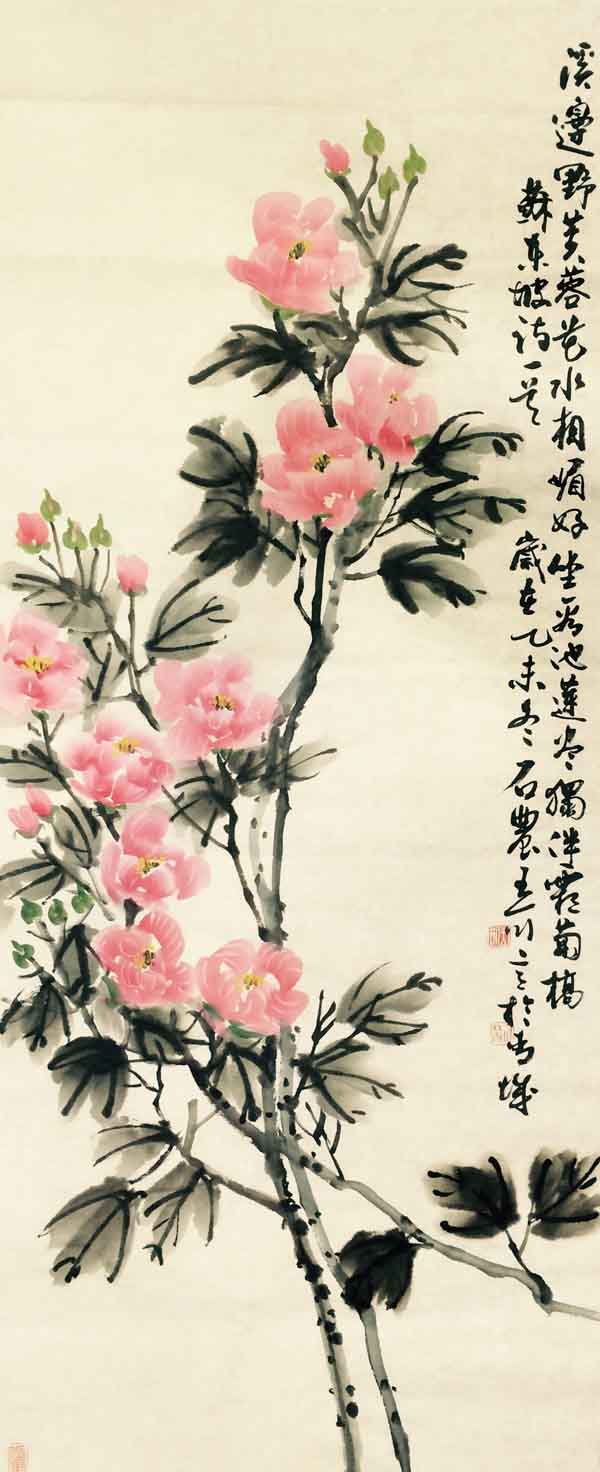 溪邊野芙蓉花水相媚好坐看池蓮盡獨伴霜菊槁
蘇東坡詩一首 歲在乙未冬石農王於城